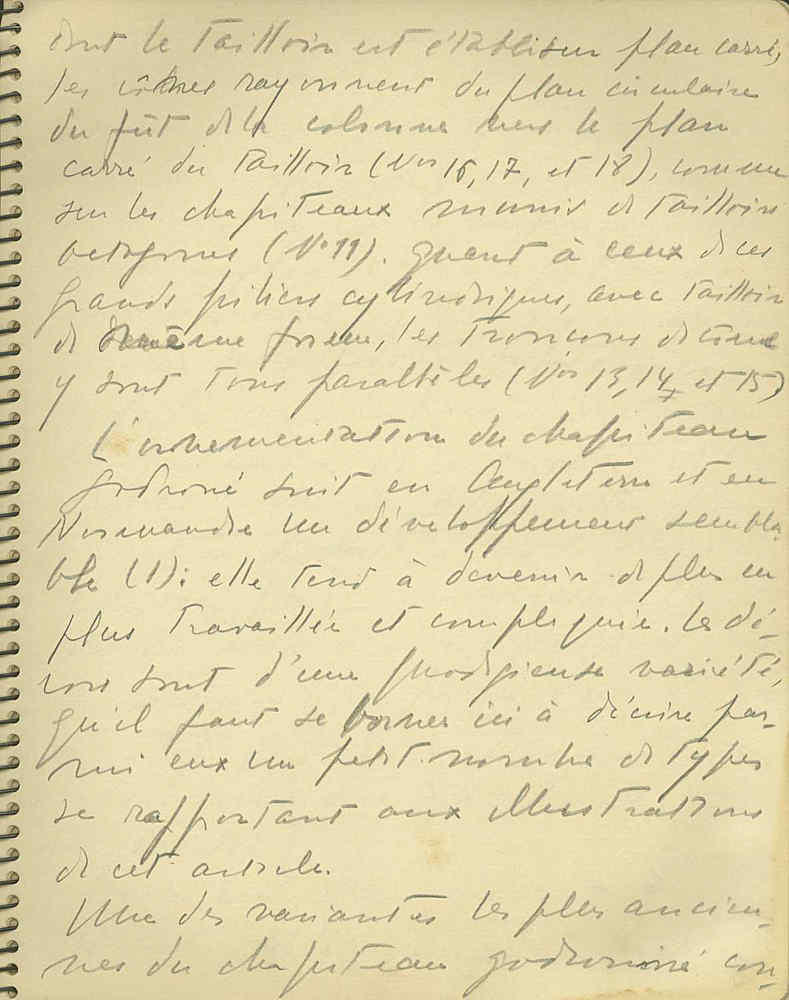 dont le tailloir est établi sur plan carré,
les cônes rayonnent du plan circulaire
du fût de la colonne vers le plan
carré du tailloir (Nos 16, 17, et 18), comme
sur les chapiteaux munis de tailloirs
octogones (No 11). Quant à ceux de ces
grands piliers cylindriques, avec tailloir
de même forme, les troncons de cône
y sont tous parallèles (Nos 13, 14, et 15)
L'ornementation du chapiteau
godronné suit en Angleterre et en
Normandie un développement sembla-
ble (1): elle tend à devenir de plus en
plus travaillée et compliquée. Les dé-
cors sont d'une prodigieuse variété,
qu'il faut se borner ici à décrire par-
mi eux un petit nombre de types
se rapportant aux illustrations
de cet article.
Une des variantes les plus ancien-
nes du chapiteau godronné con-